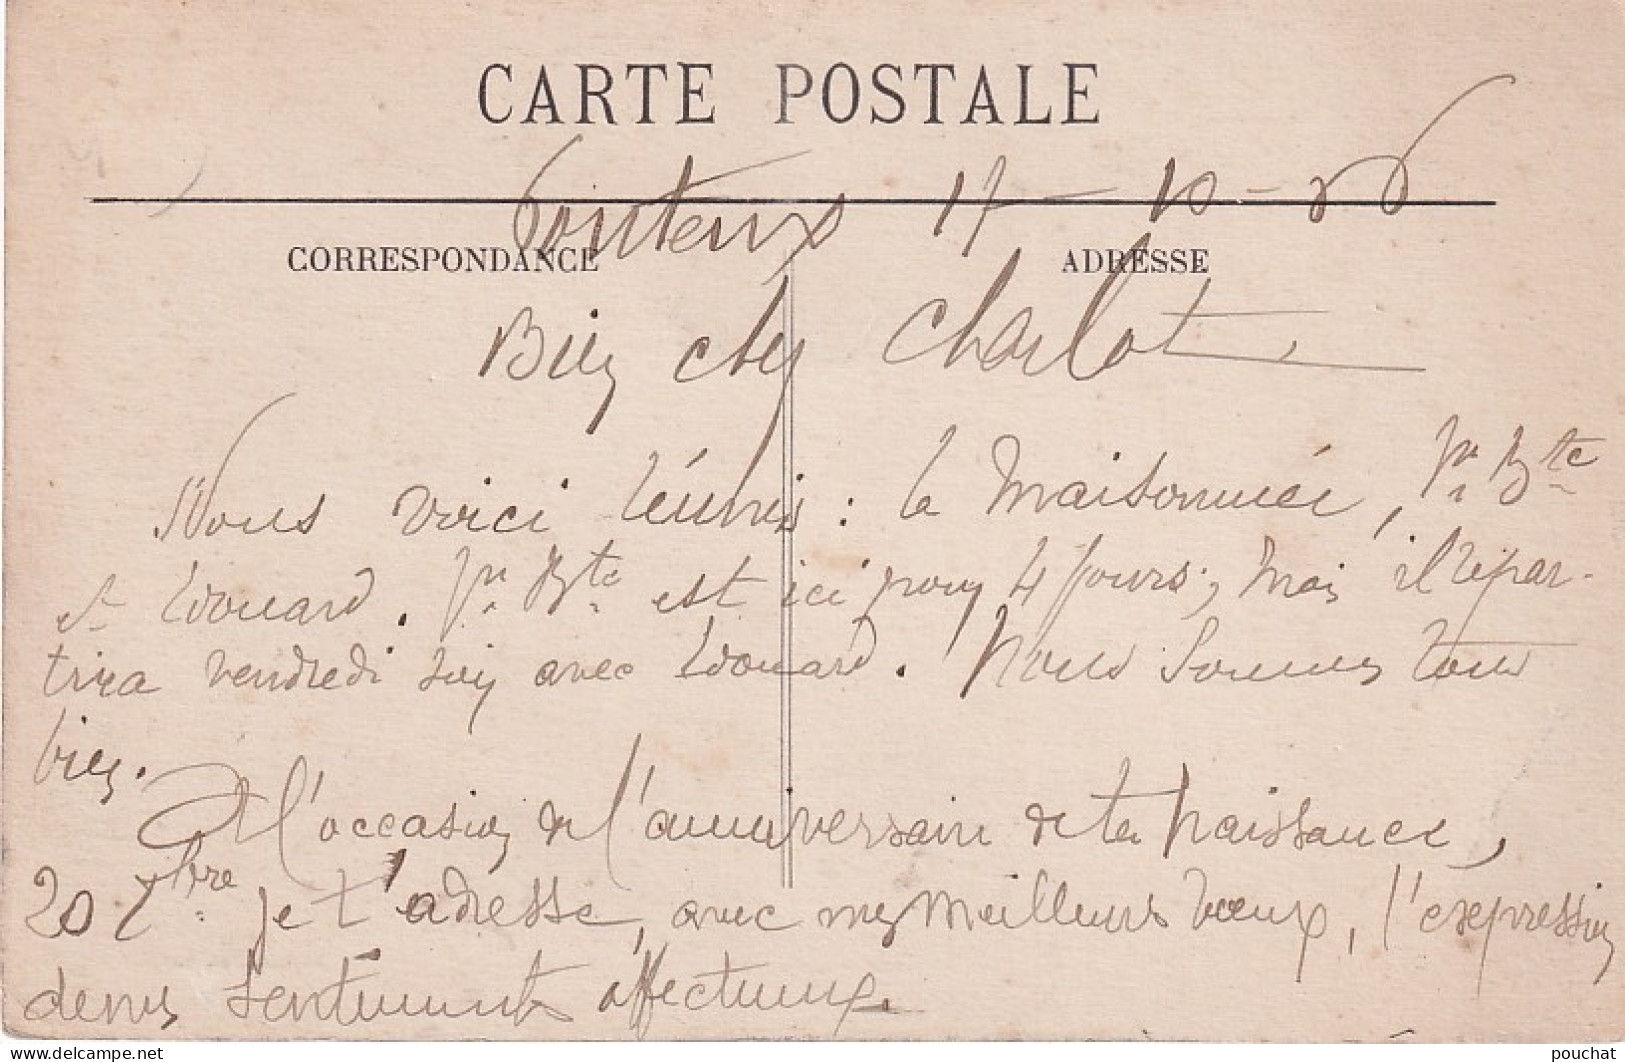 CARTE POSTALE
17 - 10 -
CORRESPONDANCE ADRESSE
Bien cher Charlot
Nous voici réunis : la Maisonnée, Jn Bte
et Edouard. Jn Bte est ici pour 4 jours; mais il repar-
tira vendredi soir avec Edouard. Nous sommes tous
bien.
A l'occasion de l'anniversaire de ta naissance,
20 8bre je t'adresse, avec mes meilleurs vœux, l'expression
de mes sentiments affectueux.
www.delcampe.net
pouchat